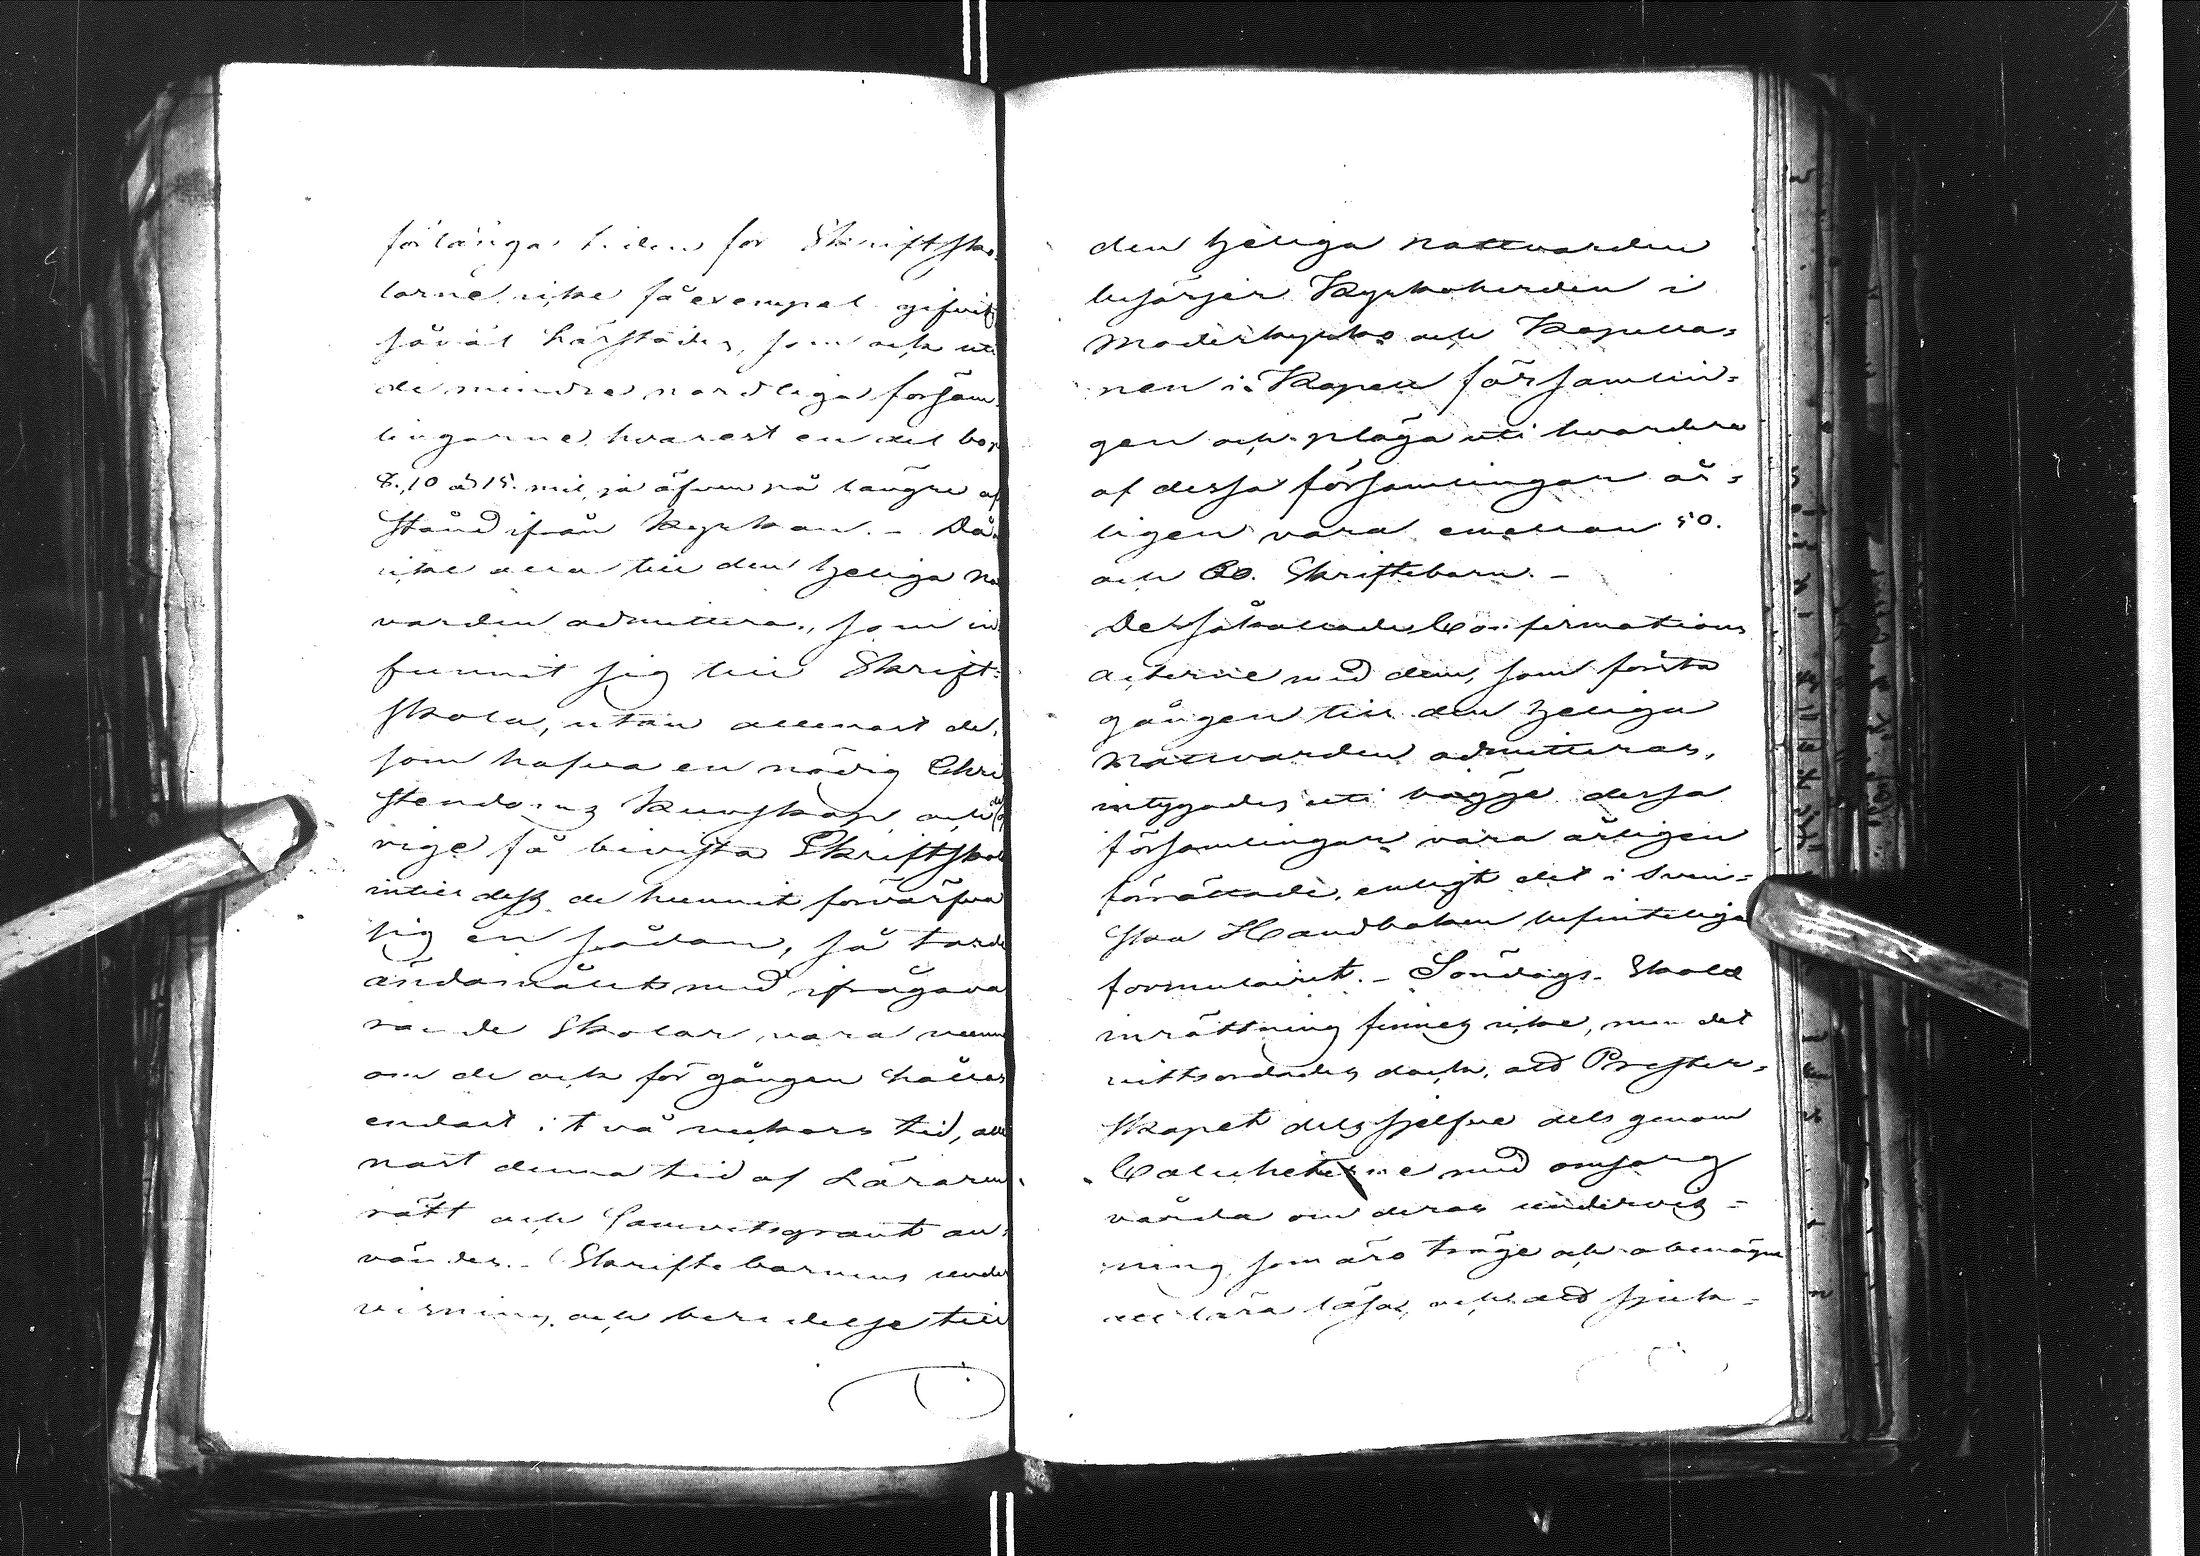 förlänga tiden for Skriftsko-
lorne, icke få exempel gifvit
såväl härstädes, som ock uti
de mindre nordliga försam-
lingarne, hvarest en del bo
8, 10 à 15. mil, ja äfven på längre af
stånd ifrån kyrkan. - Då
icke alla till den heliga na
varden admittera, som in
funnit sig till Skrift-
skola, utan allenast de,
som hafva en nödig Chri
stendoms kunskap och öf
rige få bevista Skriftskol
intill dess de hunnit förvärfva
sig en sådan, så torde
ändamålet med ifrågava
rande Skolor vara vunn
om de ock för gången hålles
endast i två veckors tid, alle
nast denna tid af Läraren
rätt och samvetsgrant an-
vändes. - Skriftebarnens under
visning och beredelse till
den heliga nattvarden
besörjer Kyrkoherden i
Moderkyrko och Kapella-
nen i Kapell församlin-
gen och plåga uti hvardera
af dessa församlingar år-
ligen vara emellan 50.
och 60. Skriftebarn. -
De såkallade Confirmations
acterne med dem, som första
gången till den heliga
Nattvarden admitteras,
intygades uti bägge dessa
församlingar vara årligen
förrättade, enligt det i Sven-
ska Handboken befinteliga
formulairet. - Söndags-Skole
inrättning finnes icke, men det
vittsordades dock, att Prester-
skapet dels sjelfve dels genom
Catecheterne med omsorg
vårda om deras undervis-
ning, som äro tröge och obenägne
att lära läsa, och att sjuk-